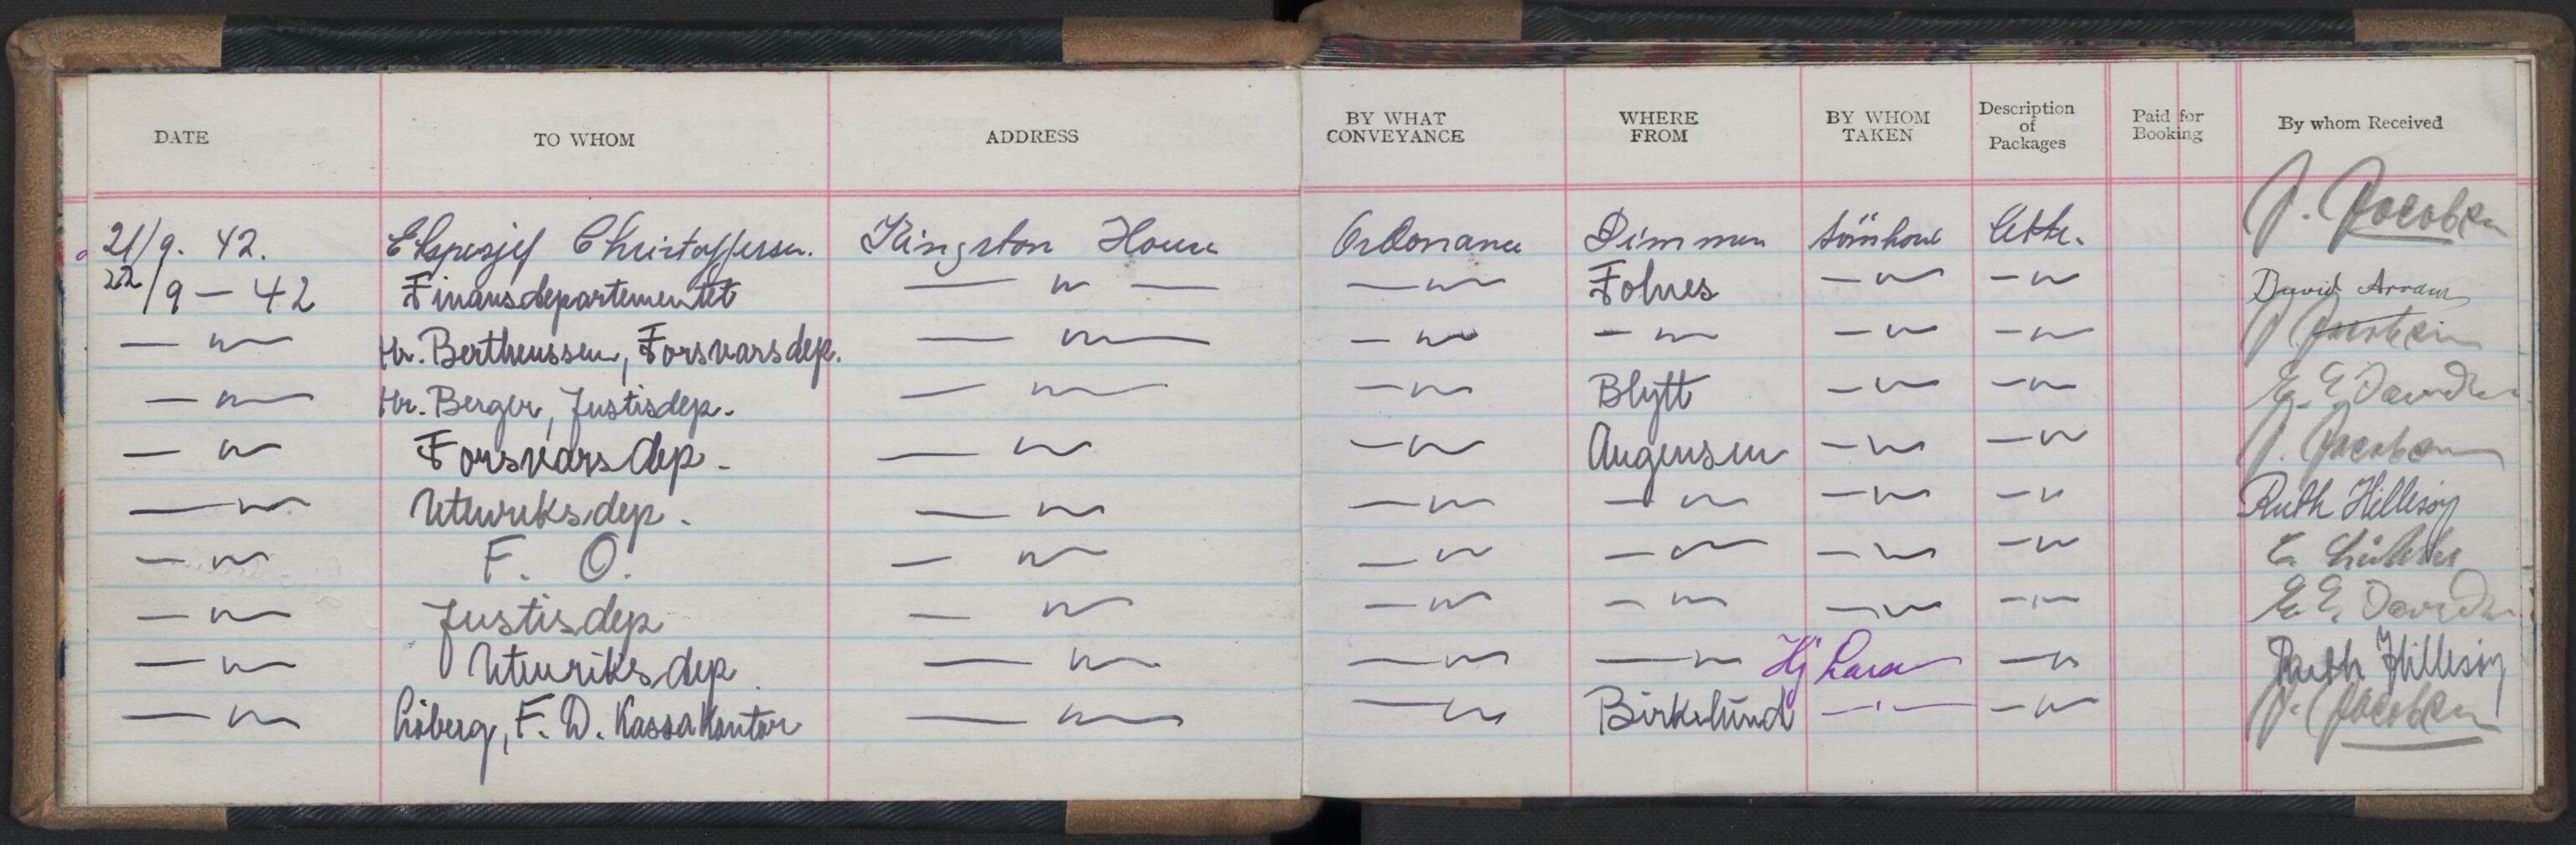 DATE TO WHOM ADDRESS BY WHAT CONVEYANCE WHERE FROM BY WHOM TAKEN Description of Packages Paid for Booking By whom Received
21/9. 42. Ekspesjef Christoffersen. Kingston House Ordonans Dimmen J. Jacobsen
22/9 — 42 Finansdepartementet — " — — " — Folnes — " — — " — David
— " — Hr. Bertheussen, Forsvarsdep. — " — — " — — " — — " — — " — J. Jacobsen
— " — Hr. Berger, Justisdep. — " — — " — Blytt — " — — " — E. E. Davidsen
— " — Forsvarsdep. — " — — " — Augensen — " — — " — J. Jacobsen
— " — Utenriksdep. — " — — " — — " — — " — — " Ruth Hillesøy
— " — F. O. — " — — " — — " — — " — — " —
— " — Justisdep — " — — " — — " — — " — — " — E. E. Davidsen
— " — Utenriksdep. — " — — " — — " — Hj Larsen — " Ruth Hillesøy
— " — F. D. Kassakontor — " — — " — Birkelund — " — — " — J. Jacobsen